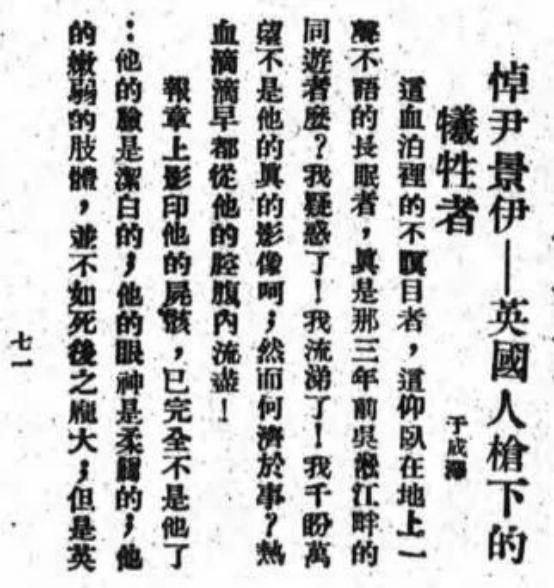 悼尹景伊—英國人槍下的
犧牲者
于成澤
這血泊裡的不瞑目者，這仰臥在地上一
聲不語的長眠者，眞是那三年前吳淞江畔的
同遊者麽？我疑惑了！我流涕了！我千盼萬
望不是他的眞的影像呵；然而何濟於事？熱
血滴滴早都從他的腔腹內流盡！
報章上影印他的屍骸，已完全不是他了
：他的臉是潔白的；他的眼神是柔的；他
的嫩弱的肢體，並不如死後之龐大；但是英
七一